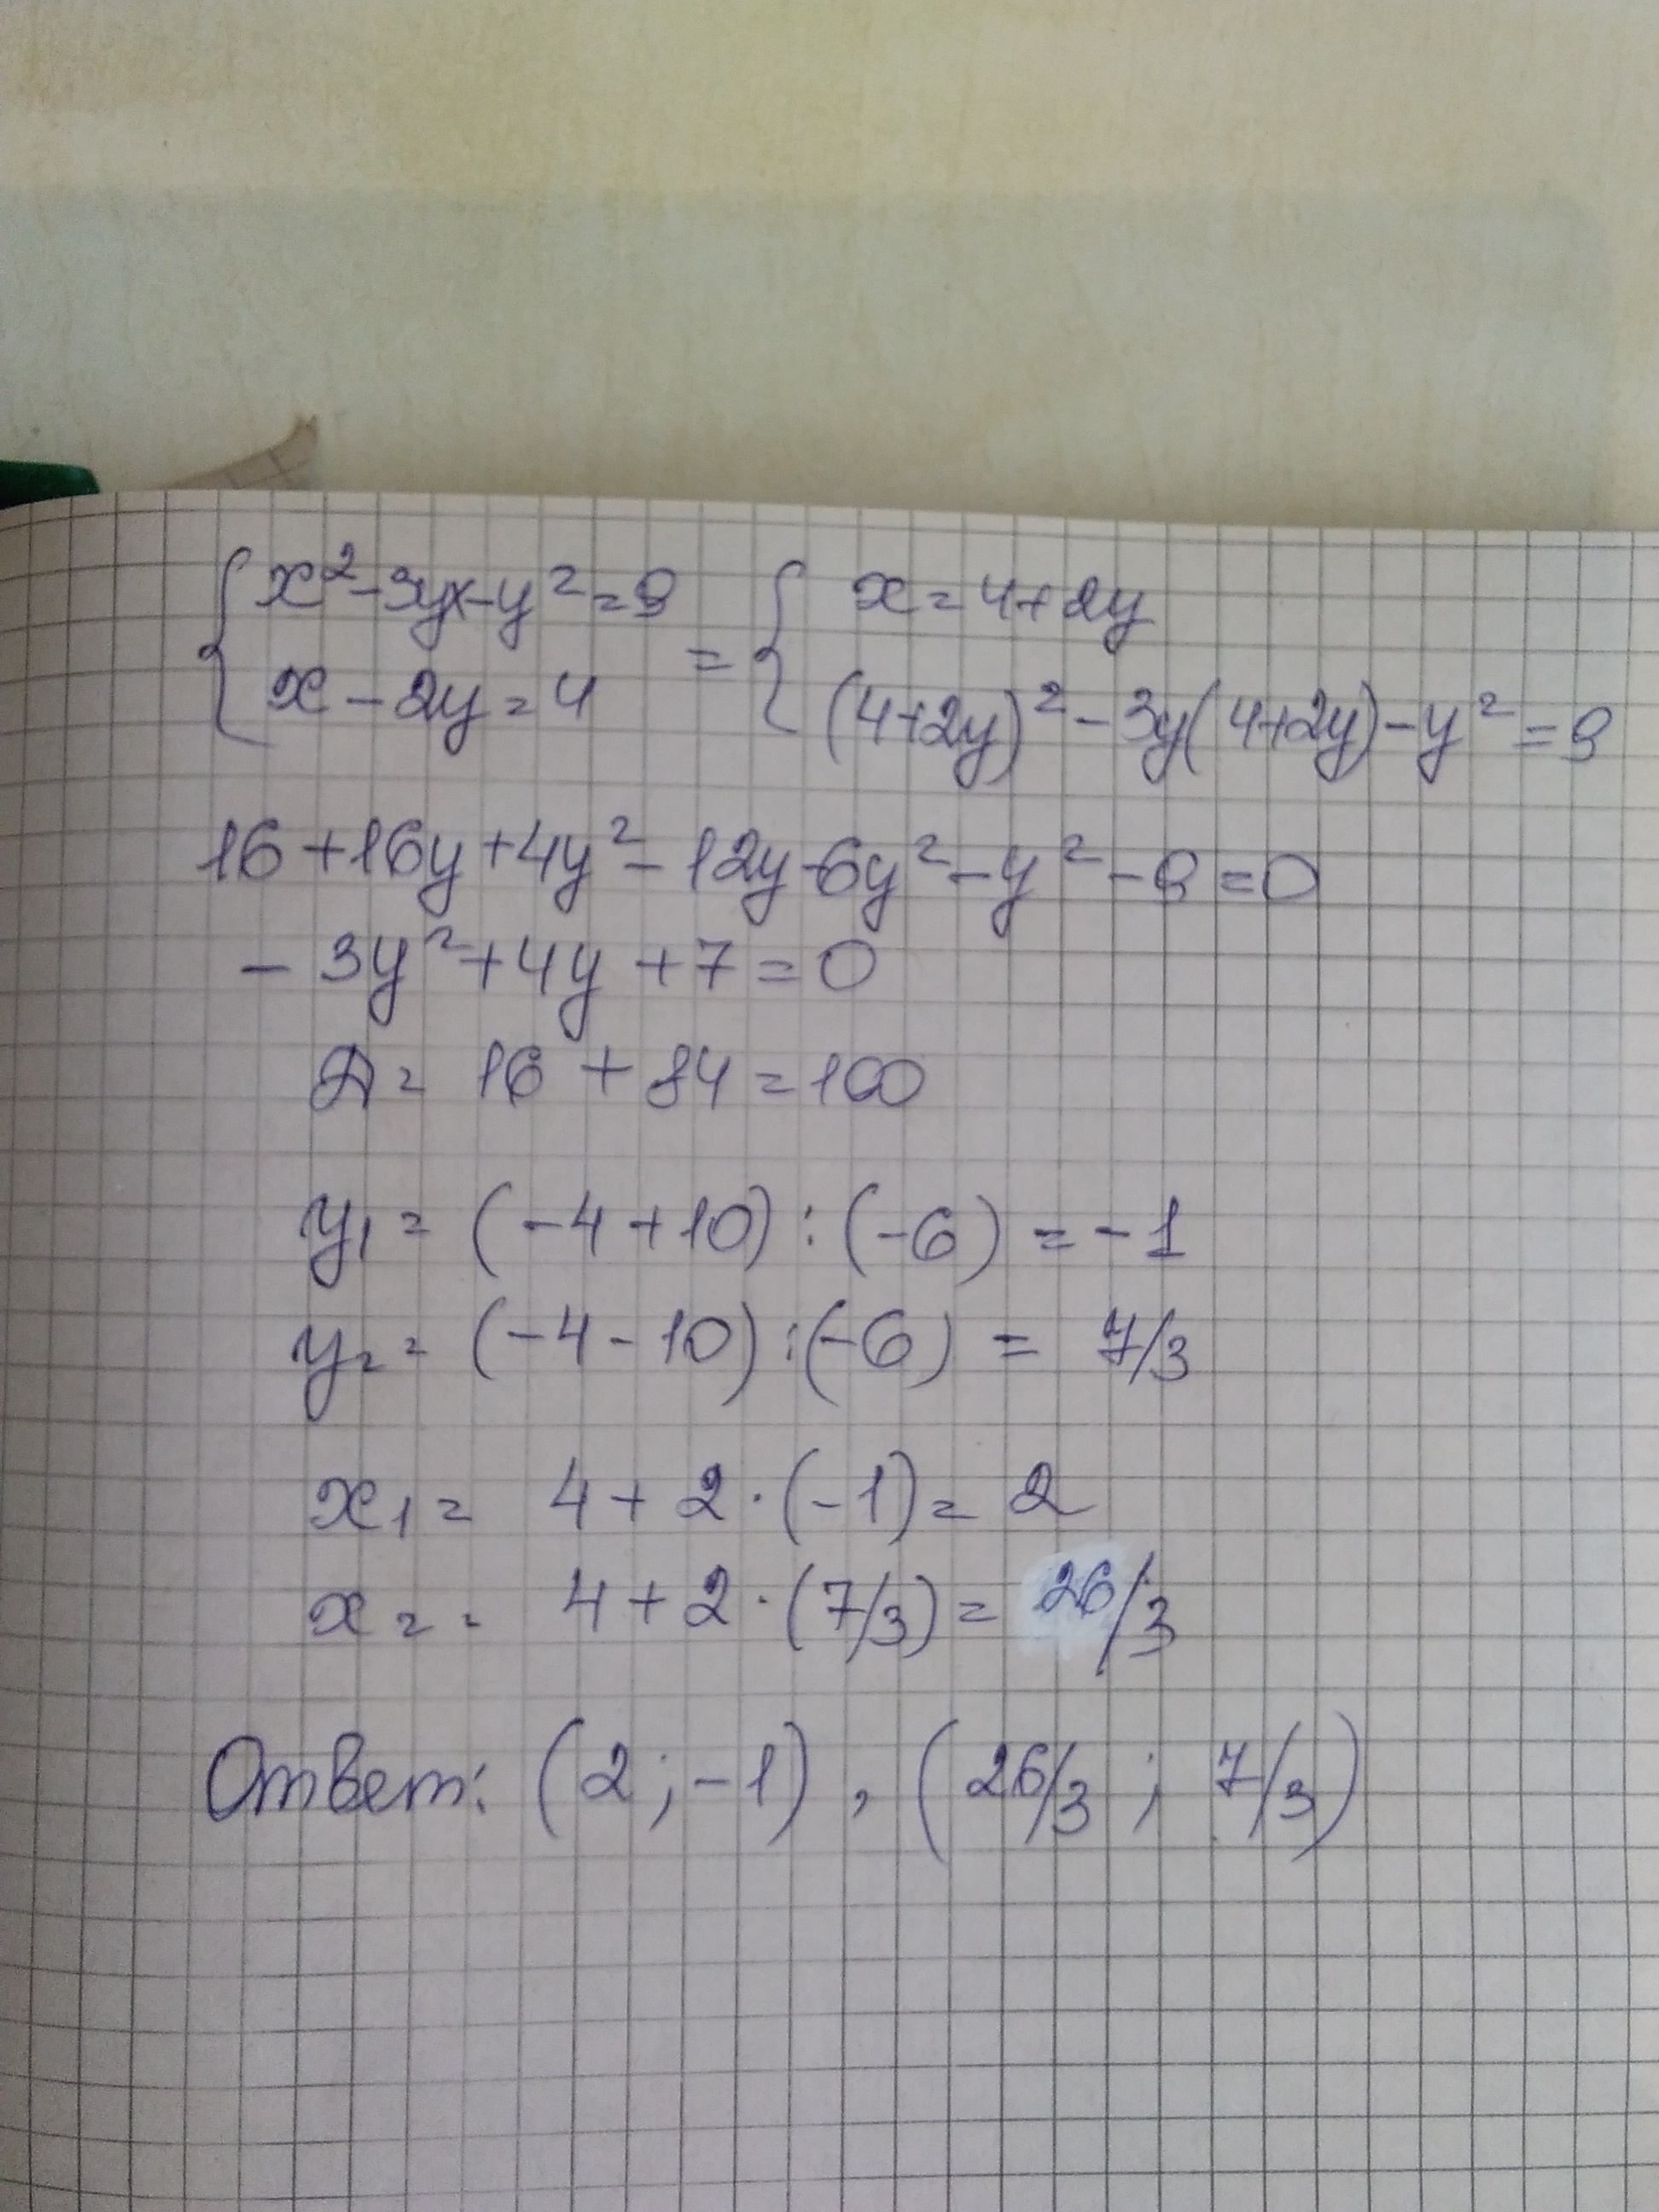 {x²-3yx-y²=9 = {x=4+2y
{x-2y=4 {(4+2y)²-3y(4+2y)-y²=9
16+16y+4y²-12y-6y²-y²-9=0
-3y²+4y+7=0
Д= 16+84=100
y₁= (-4+10):(-6)=-1
y₂= (-4-10):(-6)= 7/3
x₁= 4+2·(-1)=2
x₂= 4+2·(7/3)= 26/3
Ответ: (2;-1), (26/3; 7/3)